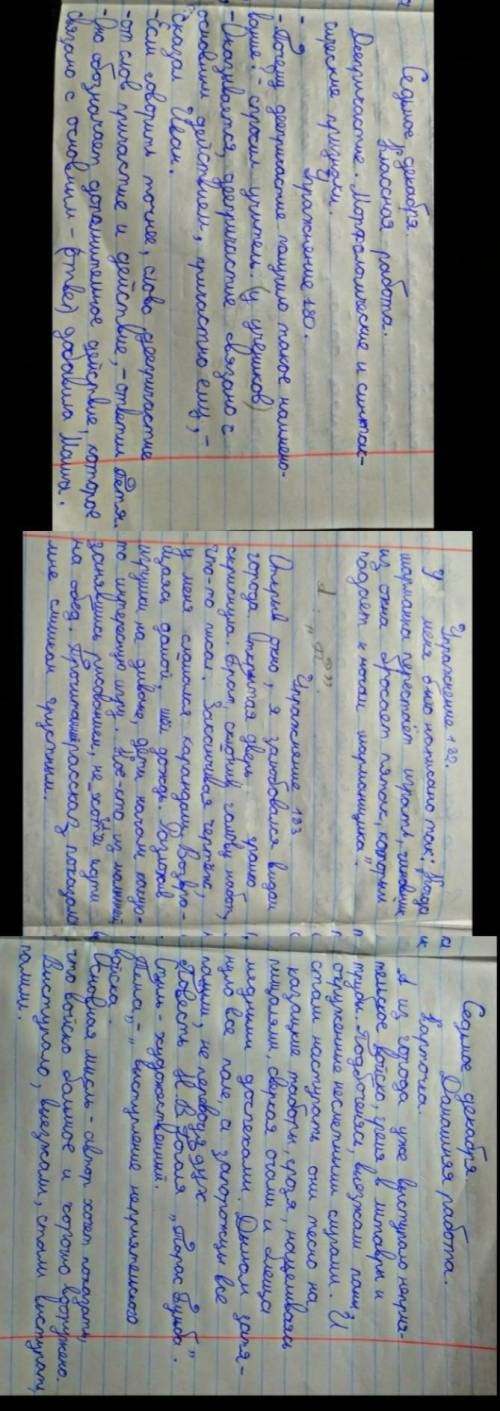 Седьмое декабря.
Классная работа.
Деепричастие. Морфологические и синтак-
сические признаки.
Упражнение 180.
- Почему деепричастие получило такое наимено-
вание? - спросил учитель (у учеников)
- Оказывается, деепричастие связано с
основным действием, причастно ему, -
сказал Иван.
- Если говорить точнее, слово деепричастие
- от слов причастие и действие, - ответили дети.
- Оно обозначает дополнительное действие, которое
связано с основным - (ответ) добавила Маша.
Упражнение 182.
У меня было написано так: "Когда
шарманка перестаёт играть, чиновник
из окна бросает пятак, который
падает к ногам шарманщика."
Упражнение 183
Открыв окно, я залюбовался видом
города. Открытая дверь
скрипнула. Брат, склонив голову набок,
что-то писал. Заканчивая чертёж,
у меня сломался карандаш. Возвра-
щаясь домой, шёл дождь. Разложив
игрушки на диване, дети начали какую-
то интересную игру. Кое-кто из малышей,
занявшись рисованием, не хотел идти
на обед. Прочитанный рассказ показался
мне слишком грустным.
Седьмое декабря
Домашняя работа.
Карточка.
А из города уже выступало неприя-
тельское войско, гремя в литавры и
трубы. Подбоченясь, выезжали паны,
окружённые несметными слугами. И
стали наступать они тесно на
казацкие таборы, грозя, нацеливаясь
пищалями, сверкая очами и блеща
медными доспехами. Дымом затя-
нуло всё поле, а запорожцы всё
палили, не переводя дух
Повесть Н.В. Гоголя "Тарас Бульба".
Стиль - художественный.
Тема - "выступление неприятельского
войска.
Основная мысль - автор хотел показать,
что войско большое и хорошо вооружено.
Выступало, выезжали, стали наступать,
палили.